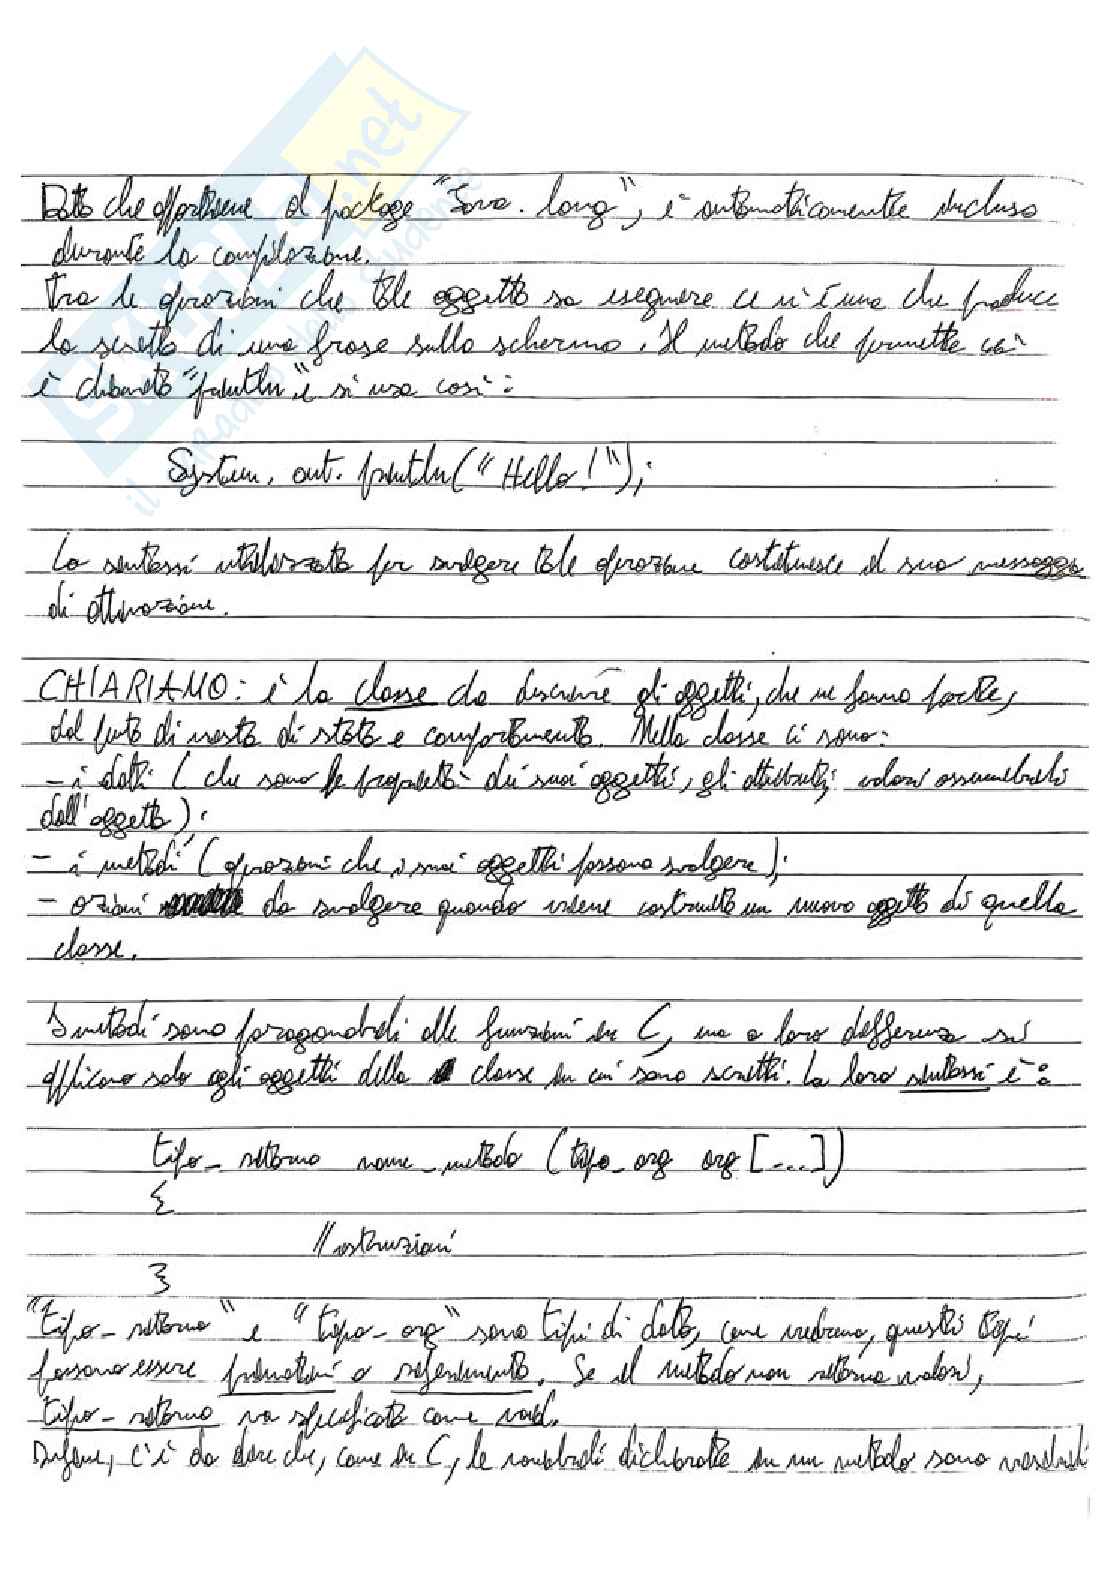 SKUOLA.net
il paradiso dello studente
Dato che appartiene al package "Java.lang", è automaticamente incluso
durante la compilazione.
Tra le operazioni che tale oggetto sa eseguire ce n'è una che produce
la scritta di una frase sullo schermo. Il metodo che permette ciò
è chiamato "println" e si usa così:
System.out.println("Hello!");
La sintassi utilizzata per svolgere tale operazione costituisce il suo messaggio
di attivazione.
CHIARIAMO: è la classe da descrivere gli oggetti, che ne fanno parte,
dal punto di vista di stato e comportamento. Nella classe ci sono:
- i dati (che sono le proprietà dei suoi oggetti, gli attributi, valori assumibili
dall'oggetto);
- i metodi (operazioni che i suoi oggetti possono svolgere);
- azioni da svolgere quando viene costruito un nuovo oggetto di quella
classe.
I metodi sono paragonabili alle funzioni in C, ma a loro differenza si
applicano solo agli oggetti della classe in cui sono scritti. La loro sintassi è:
tipo_ritorno nome_metodo (tipo_arg arg [...])
{
//istruzioni
}
"tipo_ritorno" e "tipo_arg" sono tipi di dato, come vedremo, questi tipi
possono essere primitivi o riferimento. Se il metodo non ritorna valori,
tipo_ritorno va specificato come void.
Infine, c'è da dire che, come in C, le variabili dichiarate in un metodo sono visibili